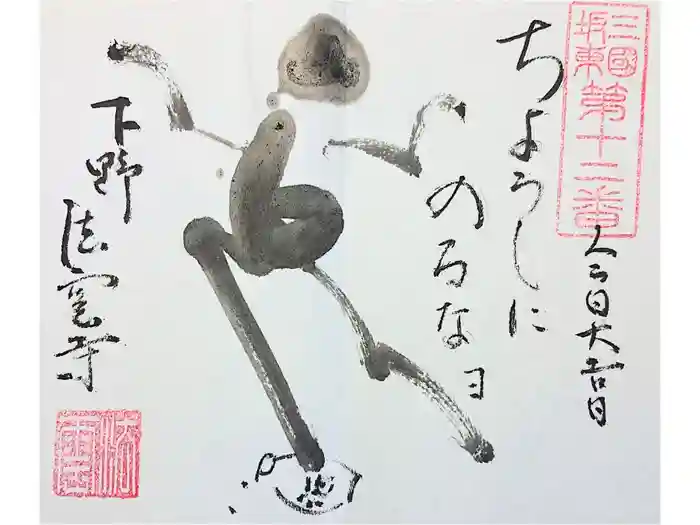 三國
坂東
第十二番
今日大吉日
ちようしに
のるなヨ
下野
法雲寺